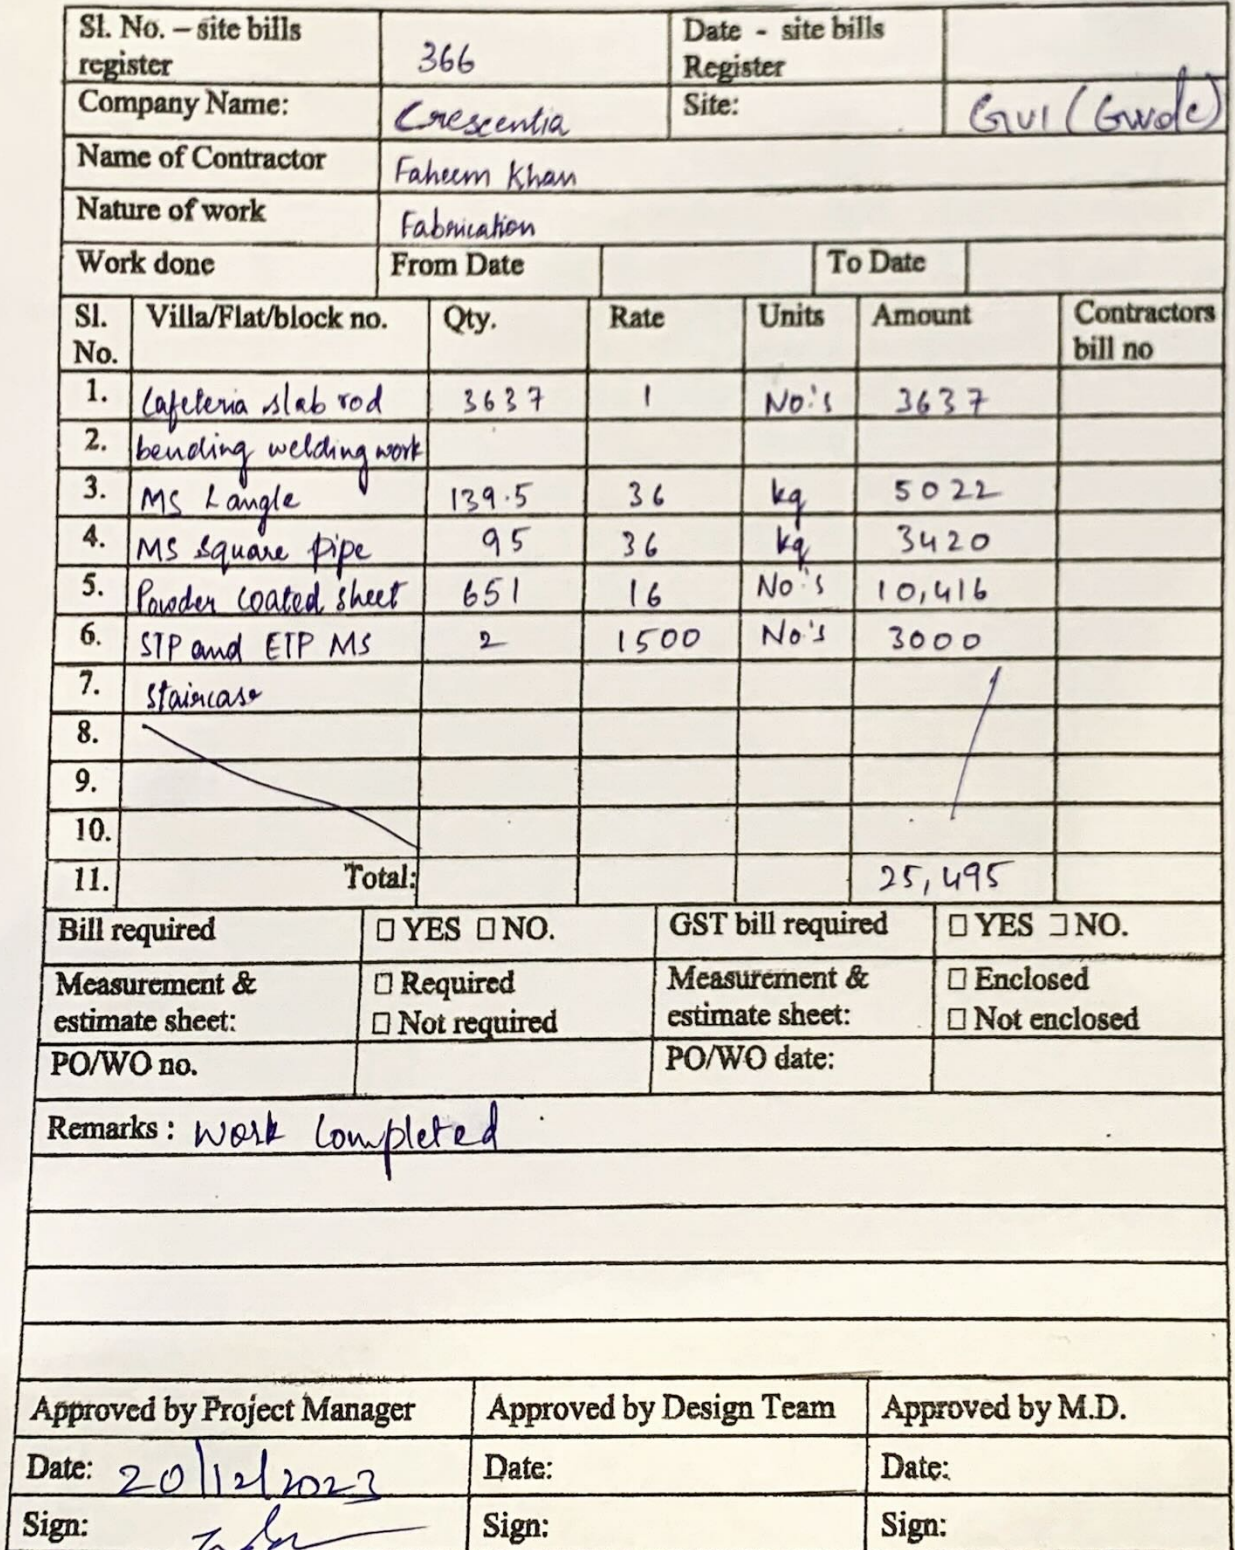 Sl. No. – site bills register 366 Date - site bills Register
Company Name: Crescentia Site: GVI (Gwdc)
Name of Contractor Faheem Khan
Nature of work Fabrication
Work done From Date To Date
Sl. No. Villa/Flat/block no. Qty. Rate Units Amount Contractors bill no
1. Cafeteria slab rod 3637 1 No's 3637
2. bending welding work
3. MS L angle 139.5 36 kg 5022
4. MS square pipe 95 36 kg 3420
5. Powder coated sheet 651 16 No's 10,416
6. STP and ETP MS 2 1500 No's 3000
7. staircase
8.
9.
10.
11. Total: 25,495
Bill required □ YES □ NO. GST bill required □ YES □ NO.
Measurement & estimate sheet: □ Required □ Not required Measurement & estimate sheet: □ Enclosed □ Not enclosed
PO/WO no. PO/WO date:
Remarks : Work Completed
Approved by Project Manager Approved by Design Team Approved by M.D.
Date: 20/12/2023 Date: Date:
Sign: Sign: Sign: